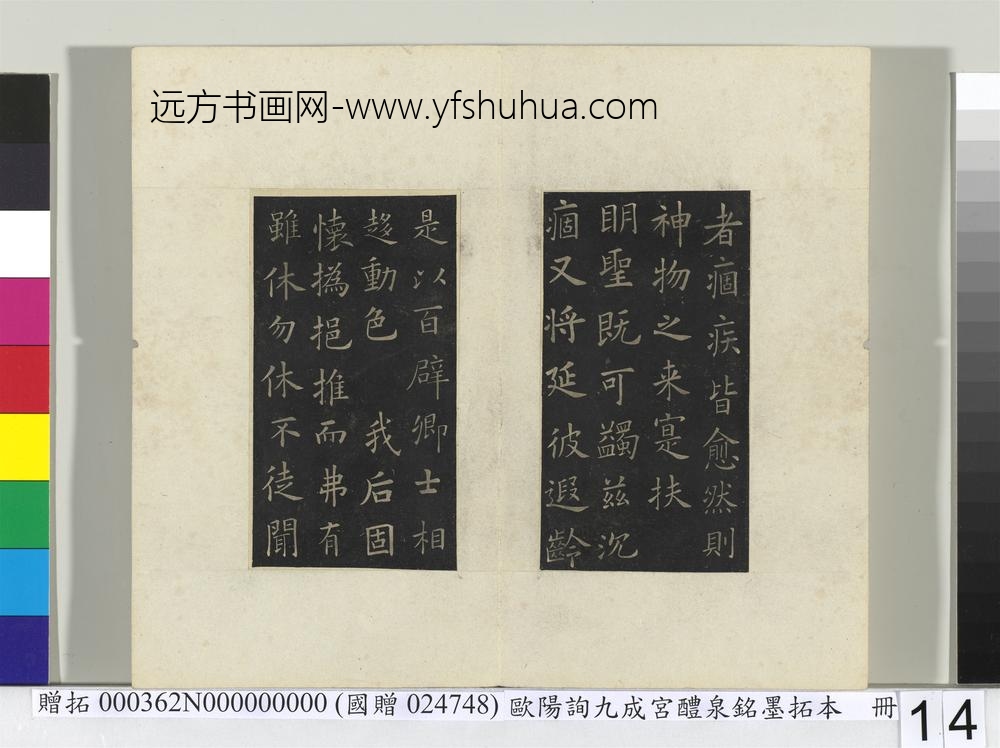 远方书画网-www.yfshuhua.com
者痼疾皆愈然則
神物之来寔扶
眀聖既可蠲兹沉
痼又将延彼遐齡
是以百辟卿士相
趍動色 我后固
懐撝挹推而弗有
雖休勿休不徒聞
贈拓 000362N000000000 (國贈 024748) 歐陽詢九成宮醴泉銘墨拓本 冊
14